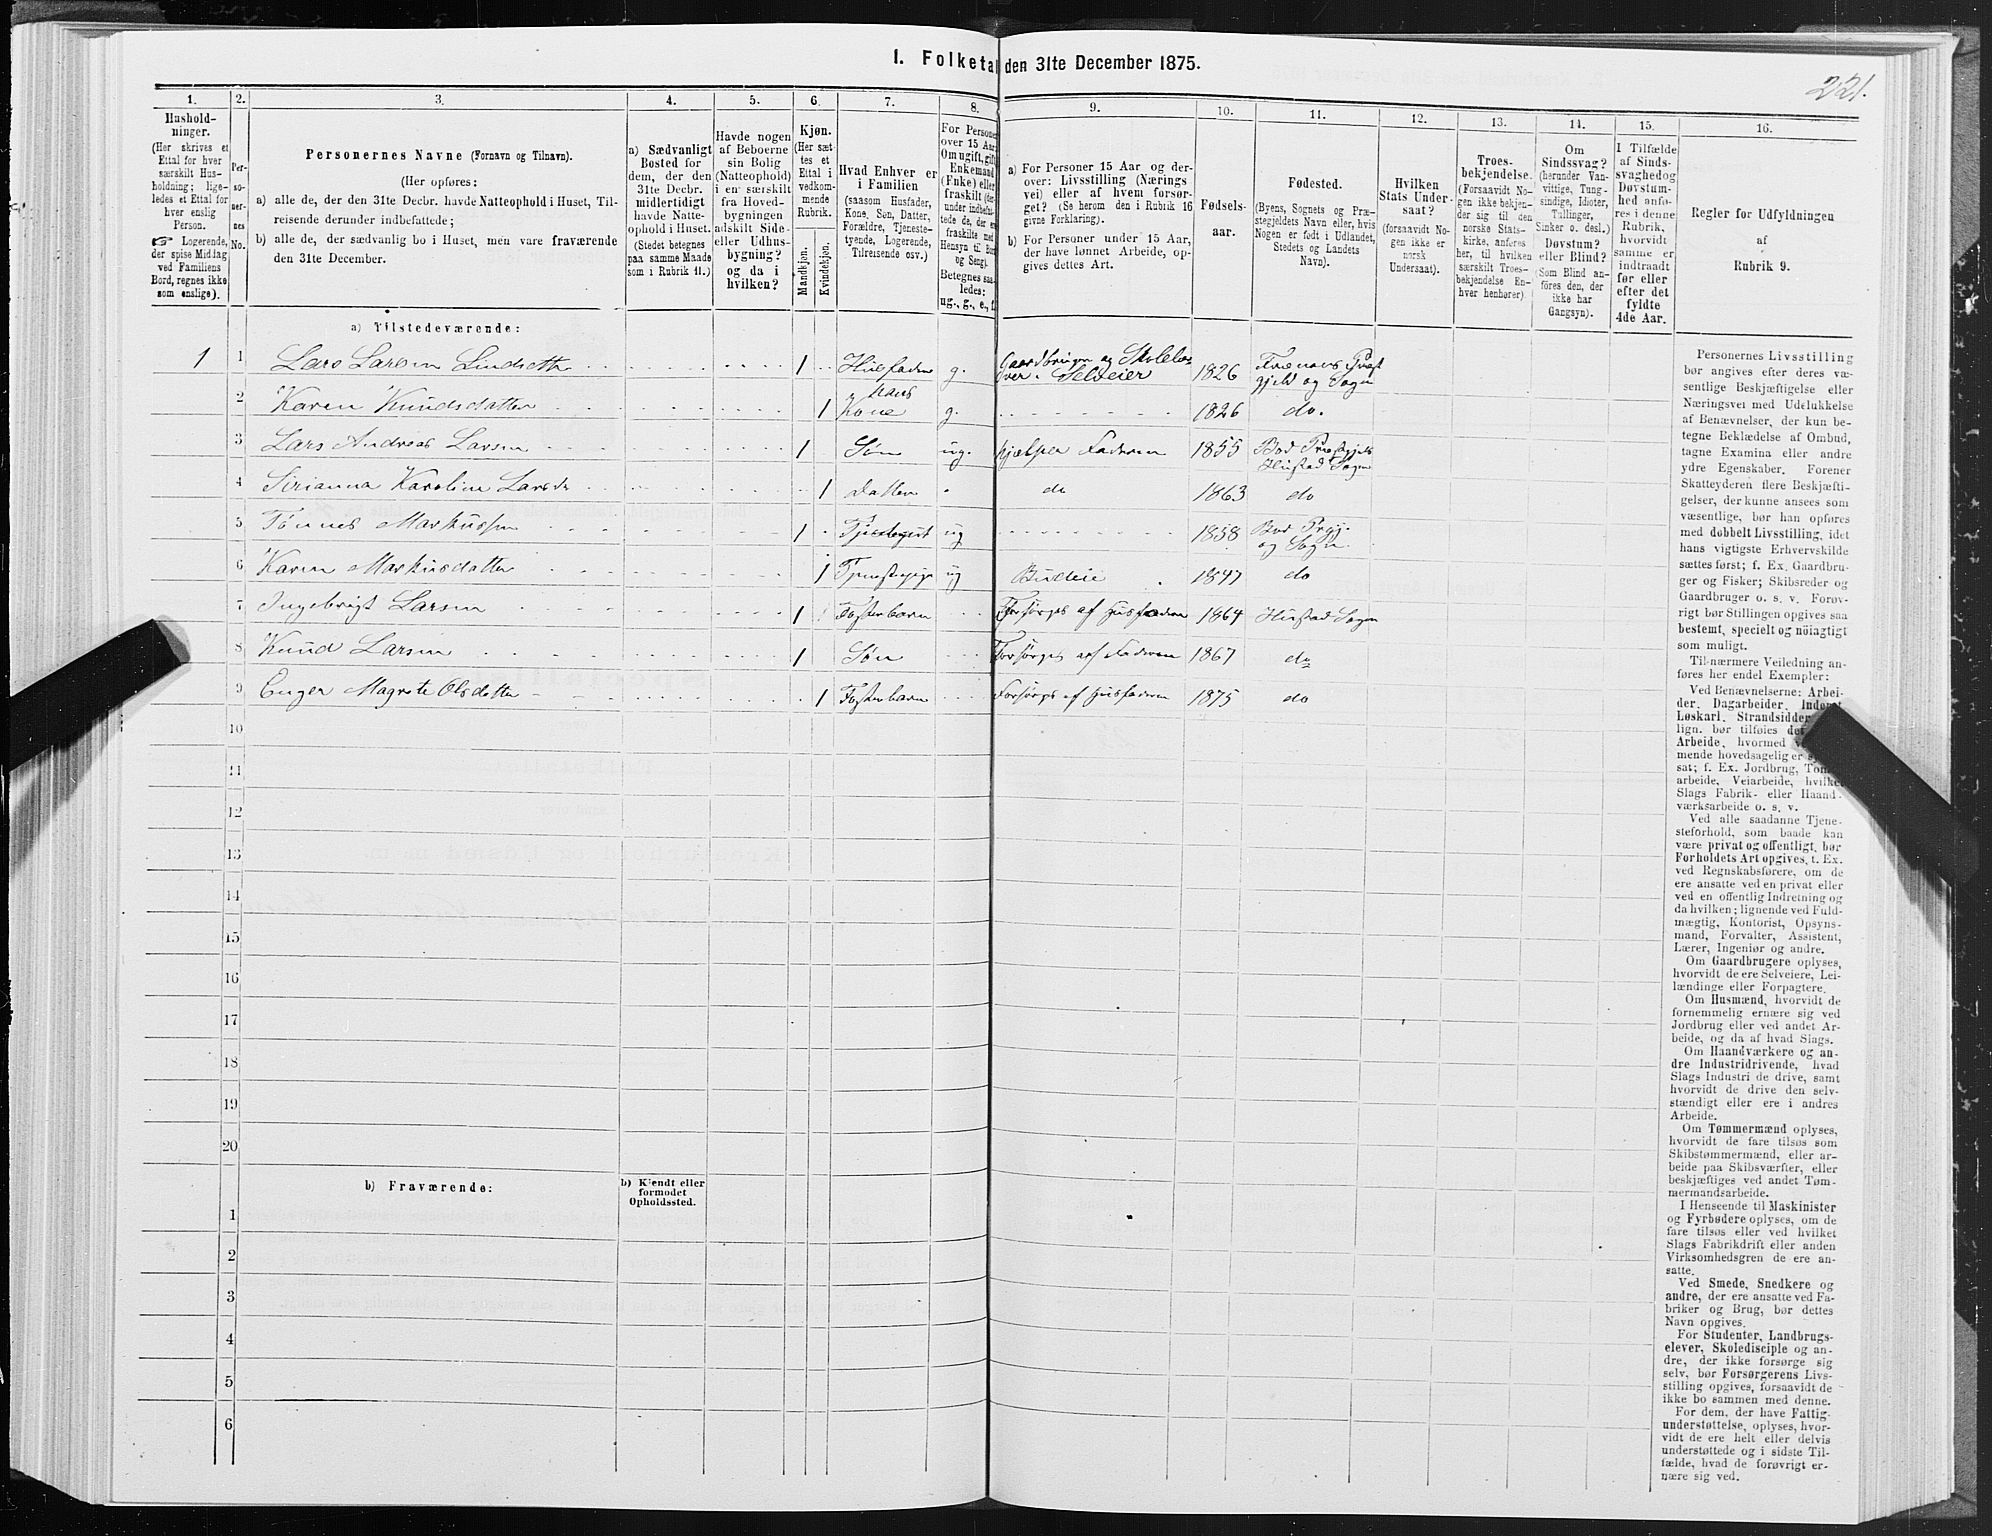 I. Folketa den 31te December 1875.
221.
1.
2.
3.
4.
5.
6.
7.
8.
9.
10.
11.
12.
13.
14.
15.
16.
Hushold-
ninger.
(Her skrives et
Ettal for hver
særskilt Hus-
holdning; lige-
ledes et Ettal for
hver enslig
Person.
☞ Logerende,
der spise Middag
ved Familiens
Bord, regnes ikke
som enslige).
Per-
so-
ner-
nes
No.
Personernes Navne (Fornavn og Tilnavn).
(Her opføres:
a) alle de, der den 31te Decbr. havde Natteophold i Huset, Til-
reisende derunder indbefattede;
b) alle de, der sædvanlig bo i Huset, men vare fraværende
den 31te December.
a) Sædvanligt
Bosted for
dem, der den
31te Decbr.
midlertidigt
havde Natte-
ophold i Huset.
(Stedet betegnes
paa samme Maade
som i Rubrik 11.)
Havde nogen
af Beboerne
sin Bolig
(Natteophold)
i en særskilt
fra Hoved-
bygningen
adskilt Side-
eller Udhus-
bygning?
og da i
hvilken?
Kjøn.
(Her sæt-
tes et
Ettal i
vedkom-
mende
Rubrik.
Mandkjøn.
Kvindekjøn.
Hvad Enhver er
i Familien
(saasom Husfader,
Kone, Søn, Datter,
Forældre, Tjeneste-
tyende, Logerende,
Tilreisende osv.)
For Personer
over 15 Aar
Om ugift, gift,
Enkemand
(Enke) eller
fraskilt (der-
under indbefat-
tede de, der ere
fraskilte med
Hensyn til Bord
og Seng).
Betegnes saa-
ledes:
ug., g., e., f.
a) For Personer 15 Aar og der-
over: Livsstilling (Nærings
vei) eller af hvem forsør-
get? (Se herom den i Rubrik 16
givne Forklaring).
b) For Personer under 15 Aar,
der have lønnet Arbeide, op-
gives dettes Art.
Fødsels-
aar.
Fødested.
(Byens, Sognets og Præ-
stegjeldets Navn eller, hvis
Nogen er født i Udlandet,
Stedets og Landets
Navn).
Hvilken
Stats Under-
saat?
(forsaavidt No-
gen ikke er
norsk
Undersaat).
Troes-
bekjendelse.
(Forsaavidt No-
gen ikke bekjen-
der sig til den
norske Stats-
kirke, anføres
her, til hvilken
særskilt Troes-
bekjendelse En-
hver henhører).
Om
Sindssvag?
(herunder Van-
vittige, Tung-
sindige, Idioter,
Tullinger,
Sinker o. desl.)
Døvstum?
eller Blind?
(Som Blind an-
føres den, der
ikke har
Gangsyn).
I Tilfælde
af Sinds-
svaghed og
Døvstum-
hed anfø-
res i denne
Rubrik,
hvorvidt
samme er
indtraadt
før eller
efter det
fyldte
4de Aar.
Regler for Udfyldningen
af
Rubrik 9.
a) Tilstedeværende:
1 1 Lars Larsen Lindseth 1 Husfader g. Gaardbruger og Skolelæ-
rer. Selveier 1826 Frænens Præst
gjeld og Sogn
2 Karen Knudsdatter 1 hans
Kone g. 1826 do.
3 Lars Andreas Larsen 1 Søn ug. hjelper Faderen 1855 Bod Præstgjeld
Hustad Sogn
4 Sirianna Karoline Larsdr 1 Datter do 1863 do
5 Tønnes Markussen 1 ug 1858 Bod Prgj.
og Sogn
6 Karen Markusdatter 1 Tjenestepige ug Budeie 1847 do
7 Ingebrigt Larsen 1 Fosterbarn Forsørges af Husfaderen 1864 Hustad Sogn
8 Knud Larsen 1 Søn Forsørges af Faderen 1867 do
9 Magrete Olsdatter 1 Fosterbarn Forsørges af Husfaderen 1875 do
10
11
12
13
14
15
16
17
18
19
20
b) Fraværende:
b) Kjendt eller
formodet
Opholdssted.
1
2
3
4
5
6
Personernes Livsstilling
bør angives efter deres væ-
sentlige Beskjæftigelse eller
Næringsvei med Udelukkelse
af Benævnelser, der kun be-
tegne Beklædelse af Ombud,
tagne Examina eller andre
ydre Egenskaber. Forener
Skatteyderen flere Beskjæfti-
gelser, der kunne ansees som
væsentlige, bør han opføres
med dobbelt Livsstilling, idet
hans vigtigste Erhvervskilde
sættes først; f. Ex. Gaardbru-
ger og Fisker; Skibsreder og
Gaardbruger o. s. v. Forøv-
rigt bør Stillingen opgives saa
bestemt, specielt og nøiagtigt
som muligt.
Til nærmere Veiledning an-
føres her endel Exempler:
Ved Benævnelserne: Arbei-
der, Dagarbeider, Inderst,
Løskarl, Strandsidder
lign. bør tilføies det
Arbeide, hvormed
mende hovedsagelig er
sat; f. Ex. Jordbrug, Tøm-
arbeide, Veiarbeide, hvilket
Slags Fabrik- eller Haand-
værksarbeide o. s. v.
Ved alle saadanne Tjene-
steforhold, som baade kan
være privat og offentligt, bør
Forholdets Art opgives, t. Ex.
ved Regnskabsførere, om de
ere ansatte ved en privat eller
ved en offentlig Indretning og
da hvilken; lignende ved Fuld-
mægtig, Kontorist, Opsyns-
mand, Forvalter, Assistent,
Lærer, Ingeniør og andre.
Om Gaardbrugere oplyses,
hvorvidt de ere Selveiere, Lei-
lændinge eller Forpagtere.
Om Husmænd, hvorvidt de
fornemmelig ernære sig ved
Jordbrug eller ved andet Ar-
beide, og da af hvad Slags.
Om Haandværkere og an-
dre Industridrivende, hvad
Slags Industri de drive, samt
hvorvidt de drive den selv-
stændigt eller ere i andres
Arbeide.
Om Tømmermænd oplyses,
hvorvidt de fare tilsøs som
Skibstømmermænd, eller ar-
beide paa Skibsværfter, eller
beskjæftiges ved andet Tøm-
mermandsarbeide.
I Henseende til Maskinister
og Fyrbødere oplyses, om de
fare tilsøs eller ved hvilket
Slags Fabrikdrift eller anden
Virksomhedsgren de ere an-
satte.
Ved Smede, Snedkere og
andre, der ere ansatte ved Fa-
briker og Brug, bør dettes
Navn opgives.
For Studenter, Landbrugs-
elever, Skoledisciple og an-
dre, der ikke forsørge sig
selv, bør Forsørgerens Livs-
stilling opgives, forsaavidt de
ikke bo sammen med denne.
For dem, der have Fattig-
understøttelse, oplyses, hvor-
vidt de ere helt eller delvis
understøttede og i sidste Til-
fælde, hvad de forøvrigt er-
nære sig ved.